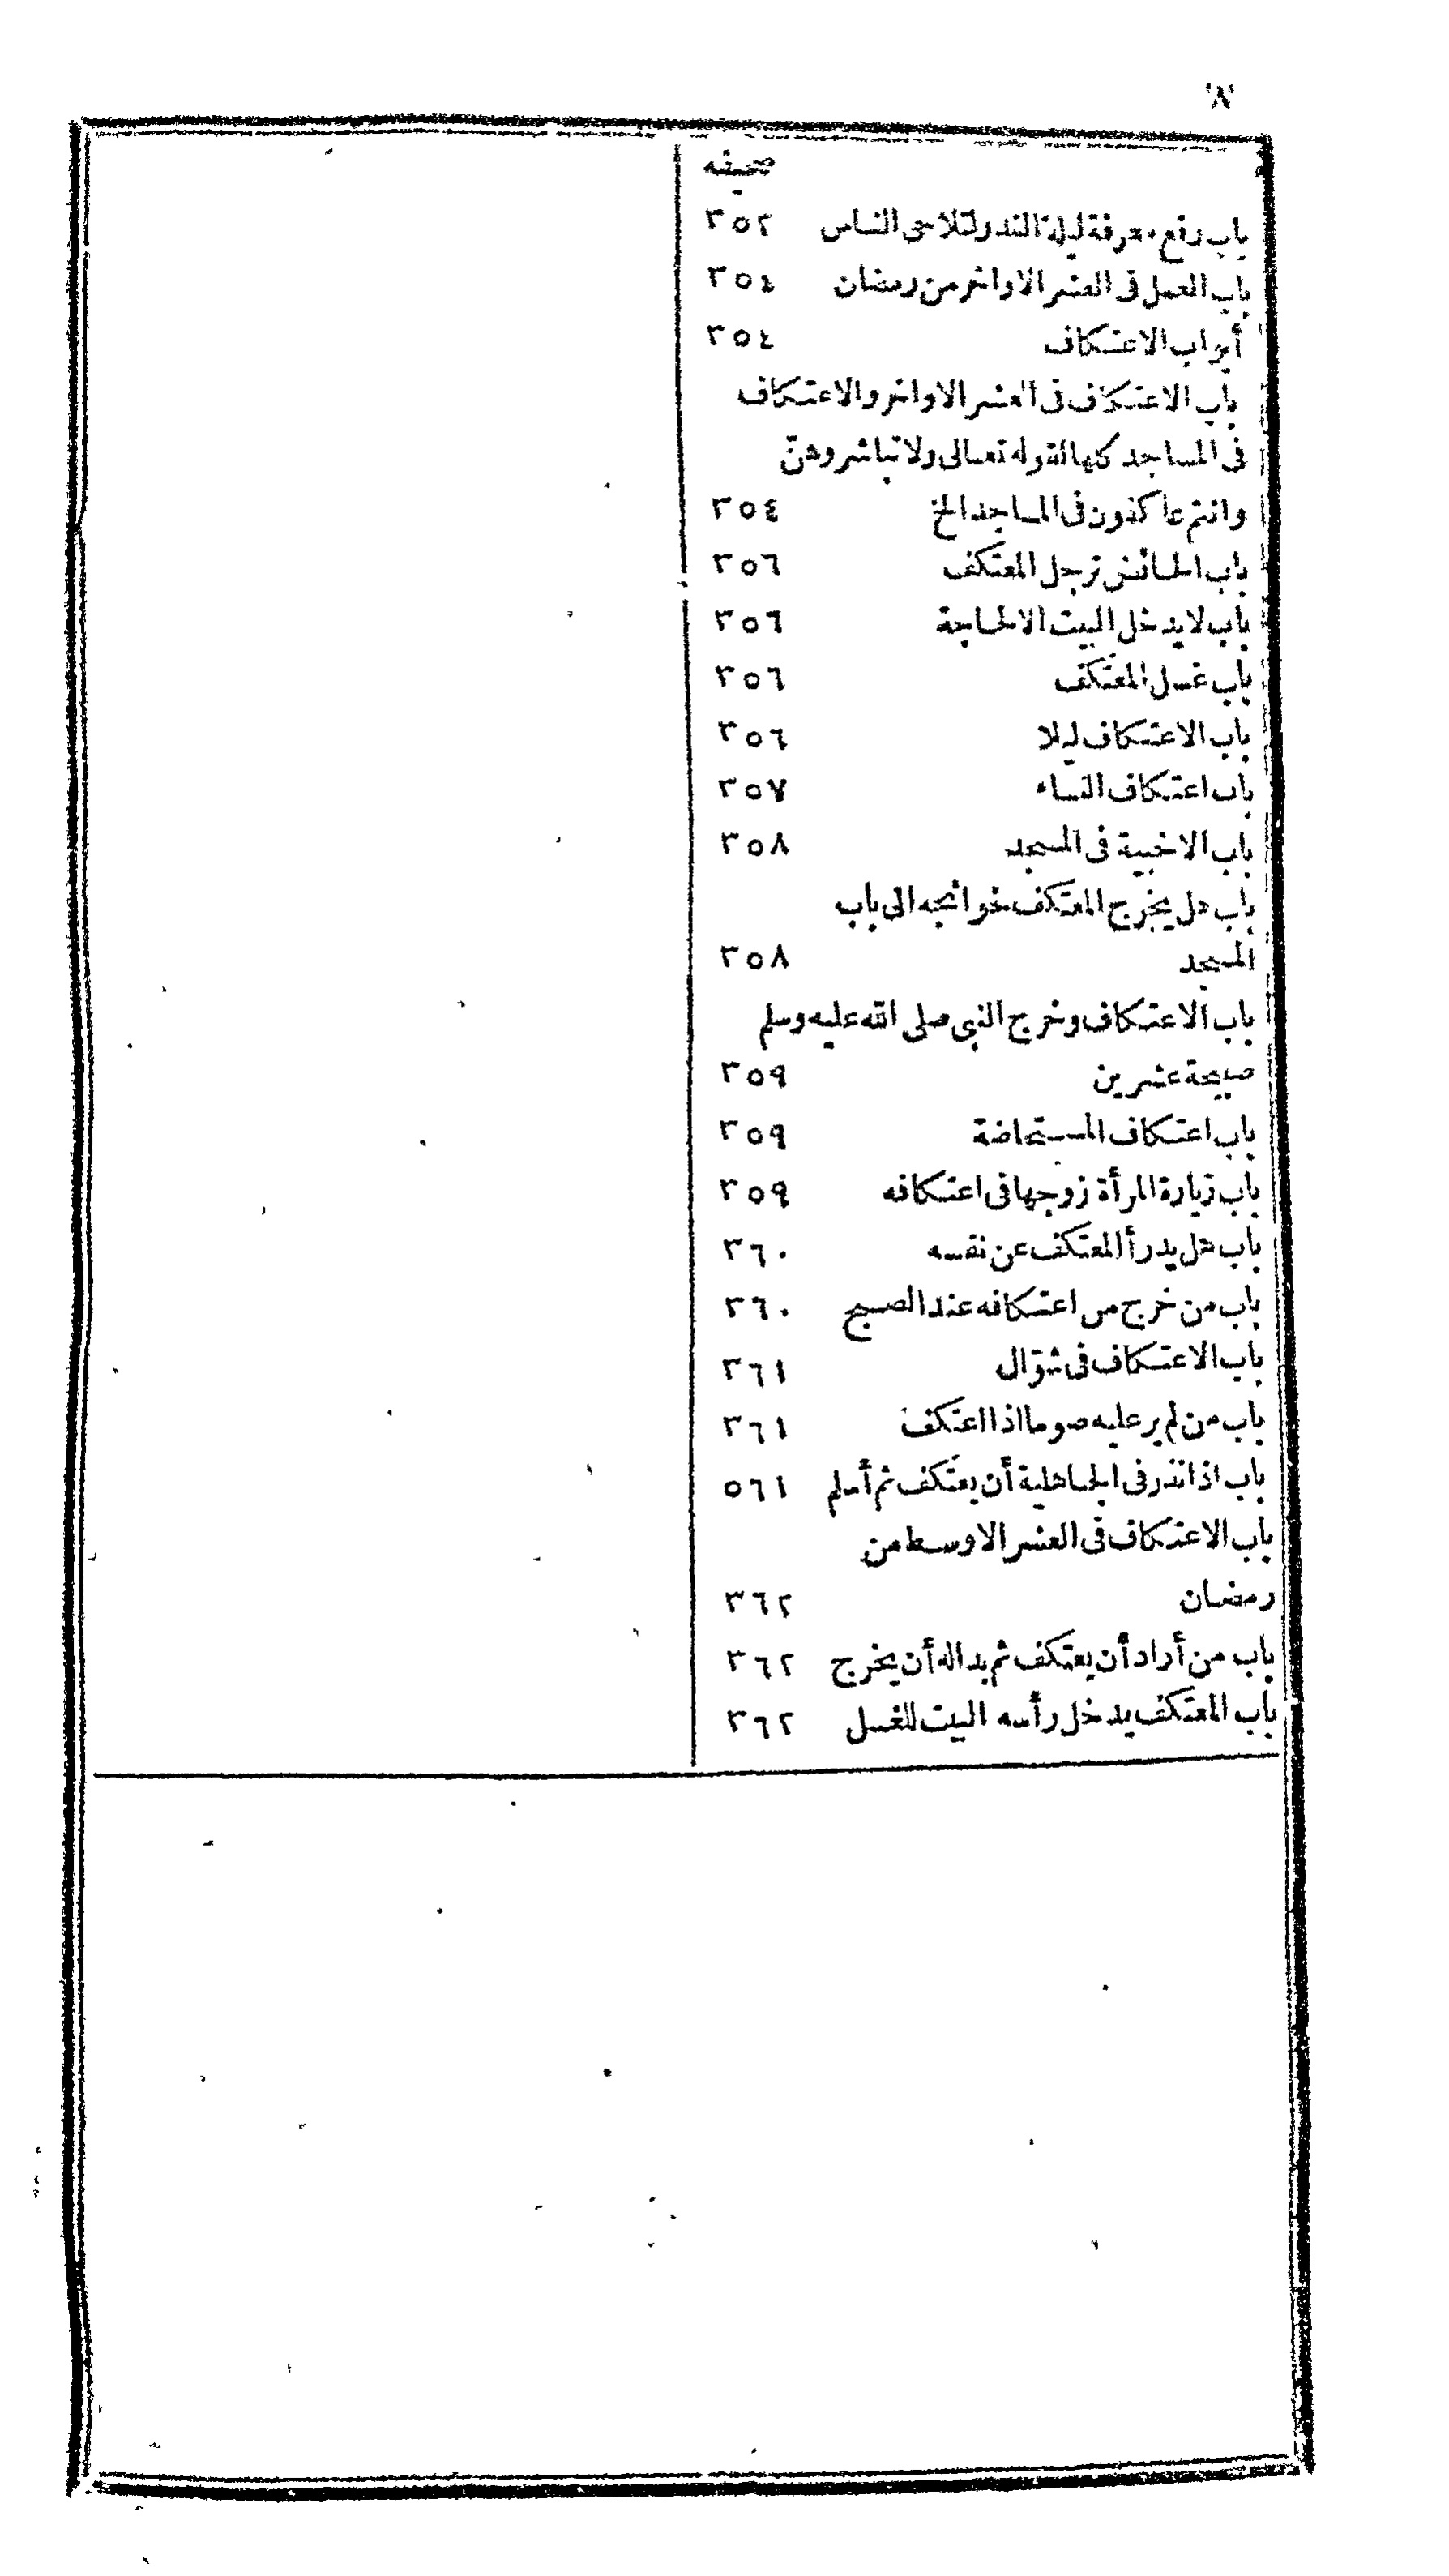 ٨
صحيفه
باب رفع معرفة ليلة القدر لتلاحى الناس ٣٥٢
باب العمل فى العشر الاواخر من رمضان ٣٥٤
أبواب الاعتكاف ٣٥٤
باب الاعتكاف فى العشر الاواخر والاعتكاف
فى المساجد كلها لقوله تعالى ولا تباشروهنّ
وانتم عاكفون فى المساجد الخ ٣٥٤
باب الحائض ترجل المعتكف ٣٥٦
باب لا يدخل البيت الا لحاجة ٣٥٦
باب غسل المعتكف ٣٥٦
باب الاعتكاف ليلا ٣٥٦
باب اعتكاف النساء ٣٥٧
باب الاخبية فى المسجد ٣٥٨
باب هل يخرج المعتكف لحوائجه الى باب
المسجد ٣٥٨
باب الاعتكاف وخرج النبى صلى الله عليه وسلم
صبيحة عشرين ٣٥٩
باب اعتكاف المستحاضة ٣٥٩
باب زيارة المرأة زوجها فى اعتكافه ٣٥٩
باب هل يدرأ المعتكف عن نفسه ٣٦٠
باب من خرج من اعتكافه عند الصبح ٣٦٠
باب الاعتكاف فى شوّال ٣٦١
باب من لم ير عليه صوما اذا اعتكف ٣٦١
باب اذا نذر فى الجاهلية أن يعتكف ثم أسلم ٥٦١
باب الاعتكاف فى العشر الاوسط من
رمضان ٣٦٢
باب من أراد أن يعتكف ثم بدا له أن يخرج ٣٦٢
باب المعتكف يدخل رأسه البيت للغسل ٣٦٢